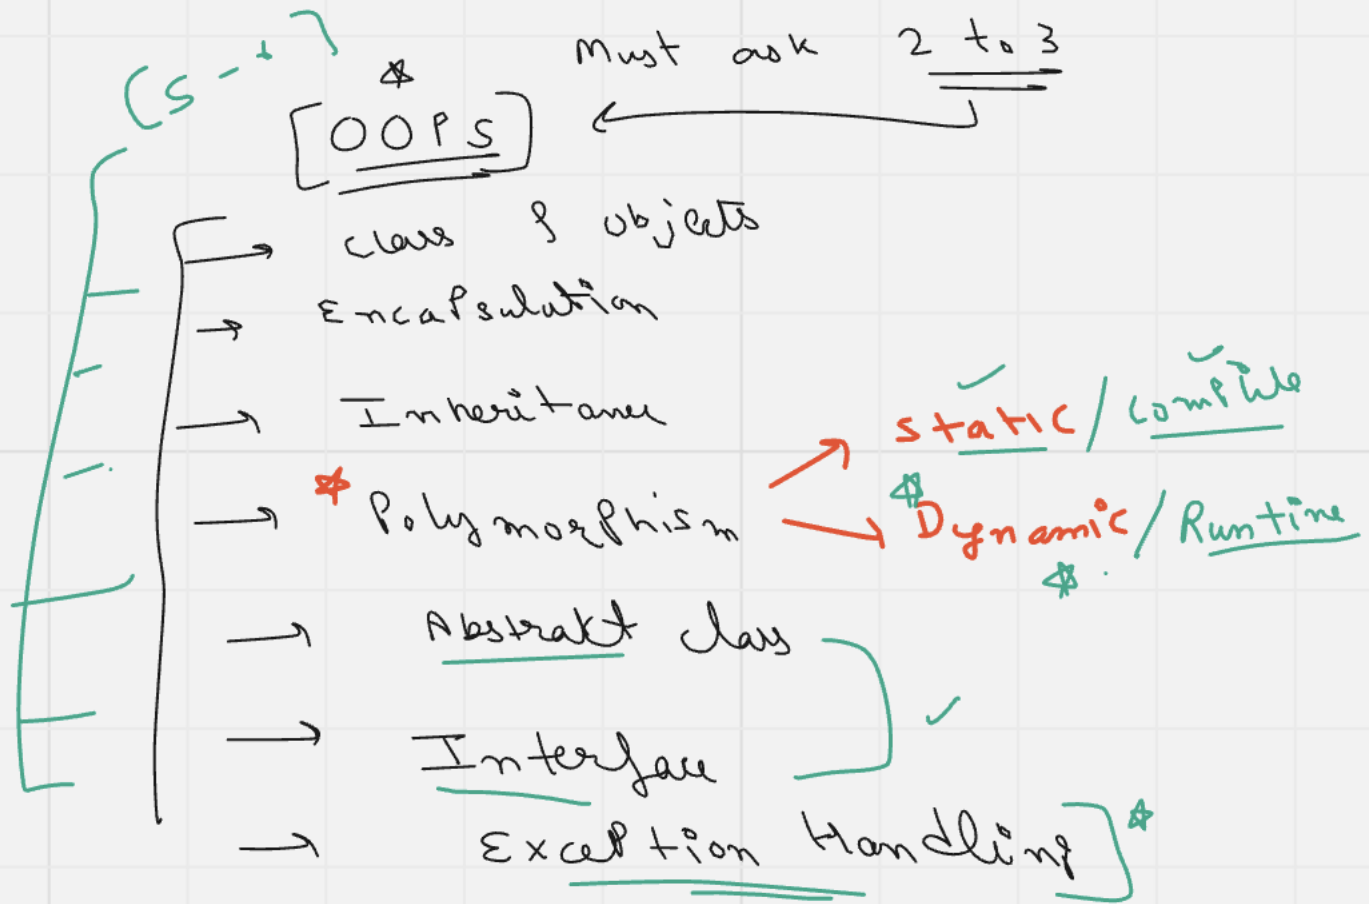 Must ask 2 to 3
[OOPS]
→ class & objects
→ Encapsulation
→ Inheritance
→ Polymorphism
static / compile
Dynamic / Runtime
→ Abstrakt class
→ Interface
→ Exception Handling